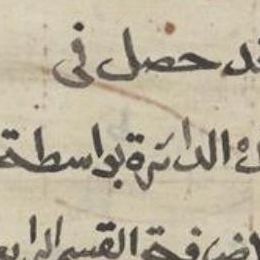 قد حصل فى
الدائرة بواسطة
القسم الرابع